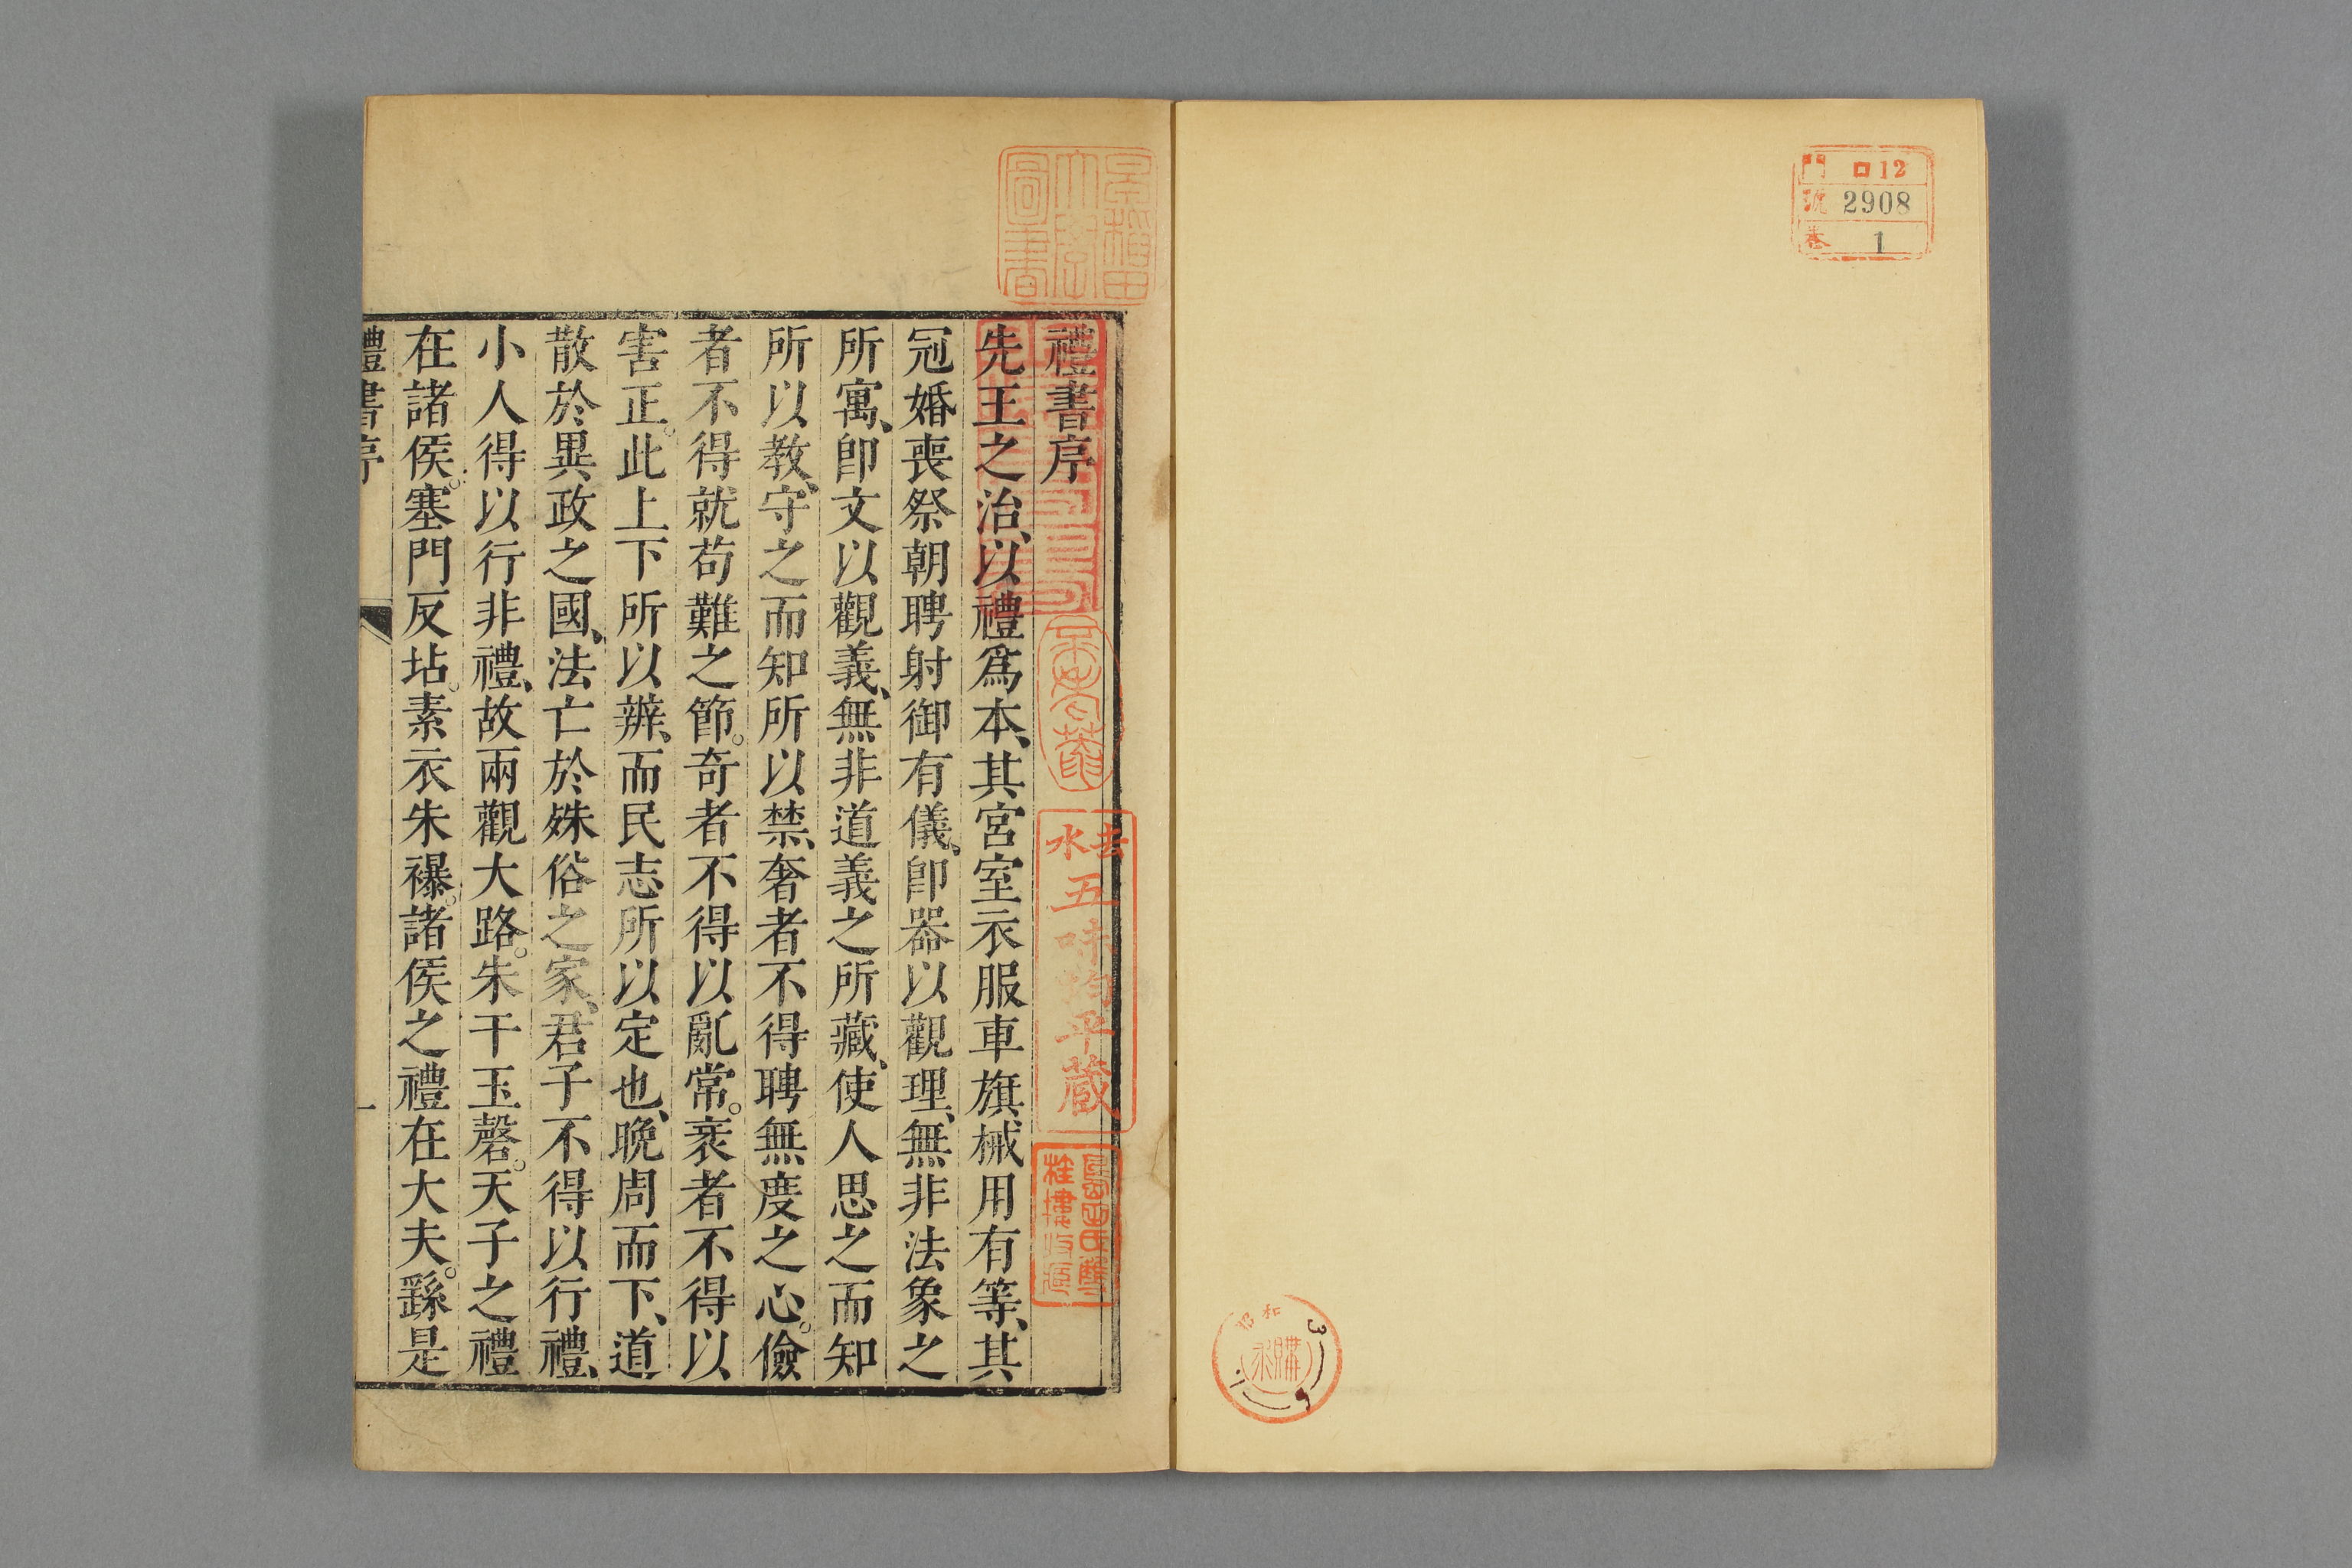 門 ロ12
號 2908
卷 1
昭和
購
早稲田
大學
圖書
禮書序
先王之治、以禮爲本、其宮室衣服車旗械用有等、其
冠婚喪祭朝聘射御有儀、卽器以觀理、無非法象之
所寓、卽文以觀義、無非道義之所藏、使人思之而知
所以教、守之而知所以禁、奢者不得聘無度之心。儉
者不得就苟難之節。奇者不得以亂常。衺者不得以
害正。此上下所以辨、而民志所以定也、晚周而下、道
散於異政之國、法亡於殊俗之家、君子不得以行禮、
小人得以行非禮、故兩觀大路。朱干玉磬。天子之禮
在諸侯。塞門反坫。素衣朱襮。諸侯之禮在大夫。繇是
禮書序
一
五味均平蔵